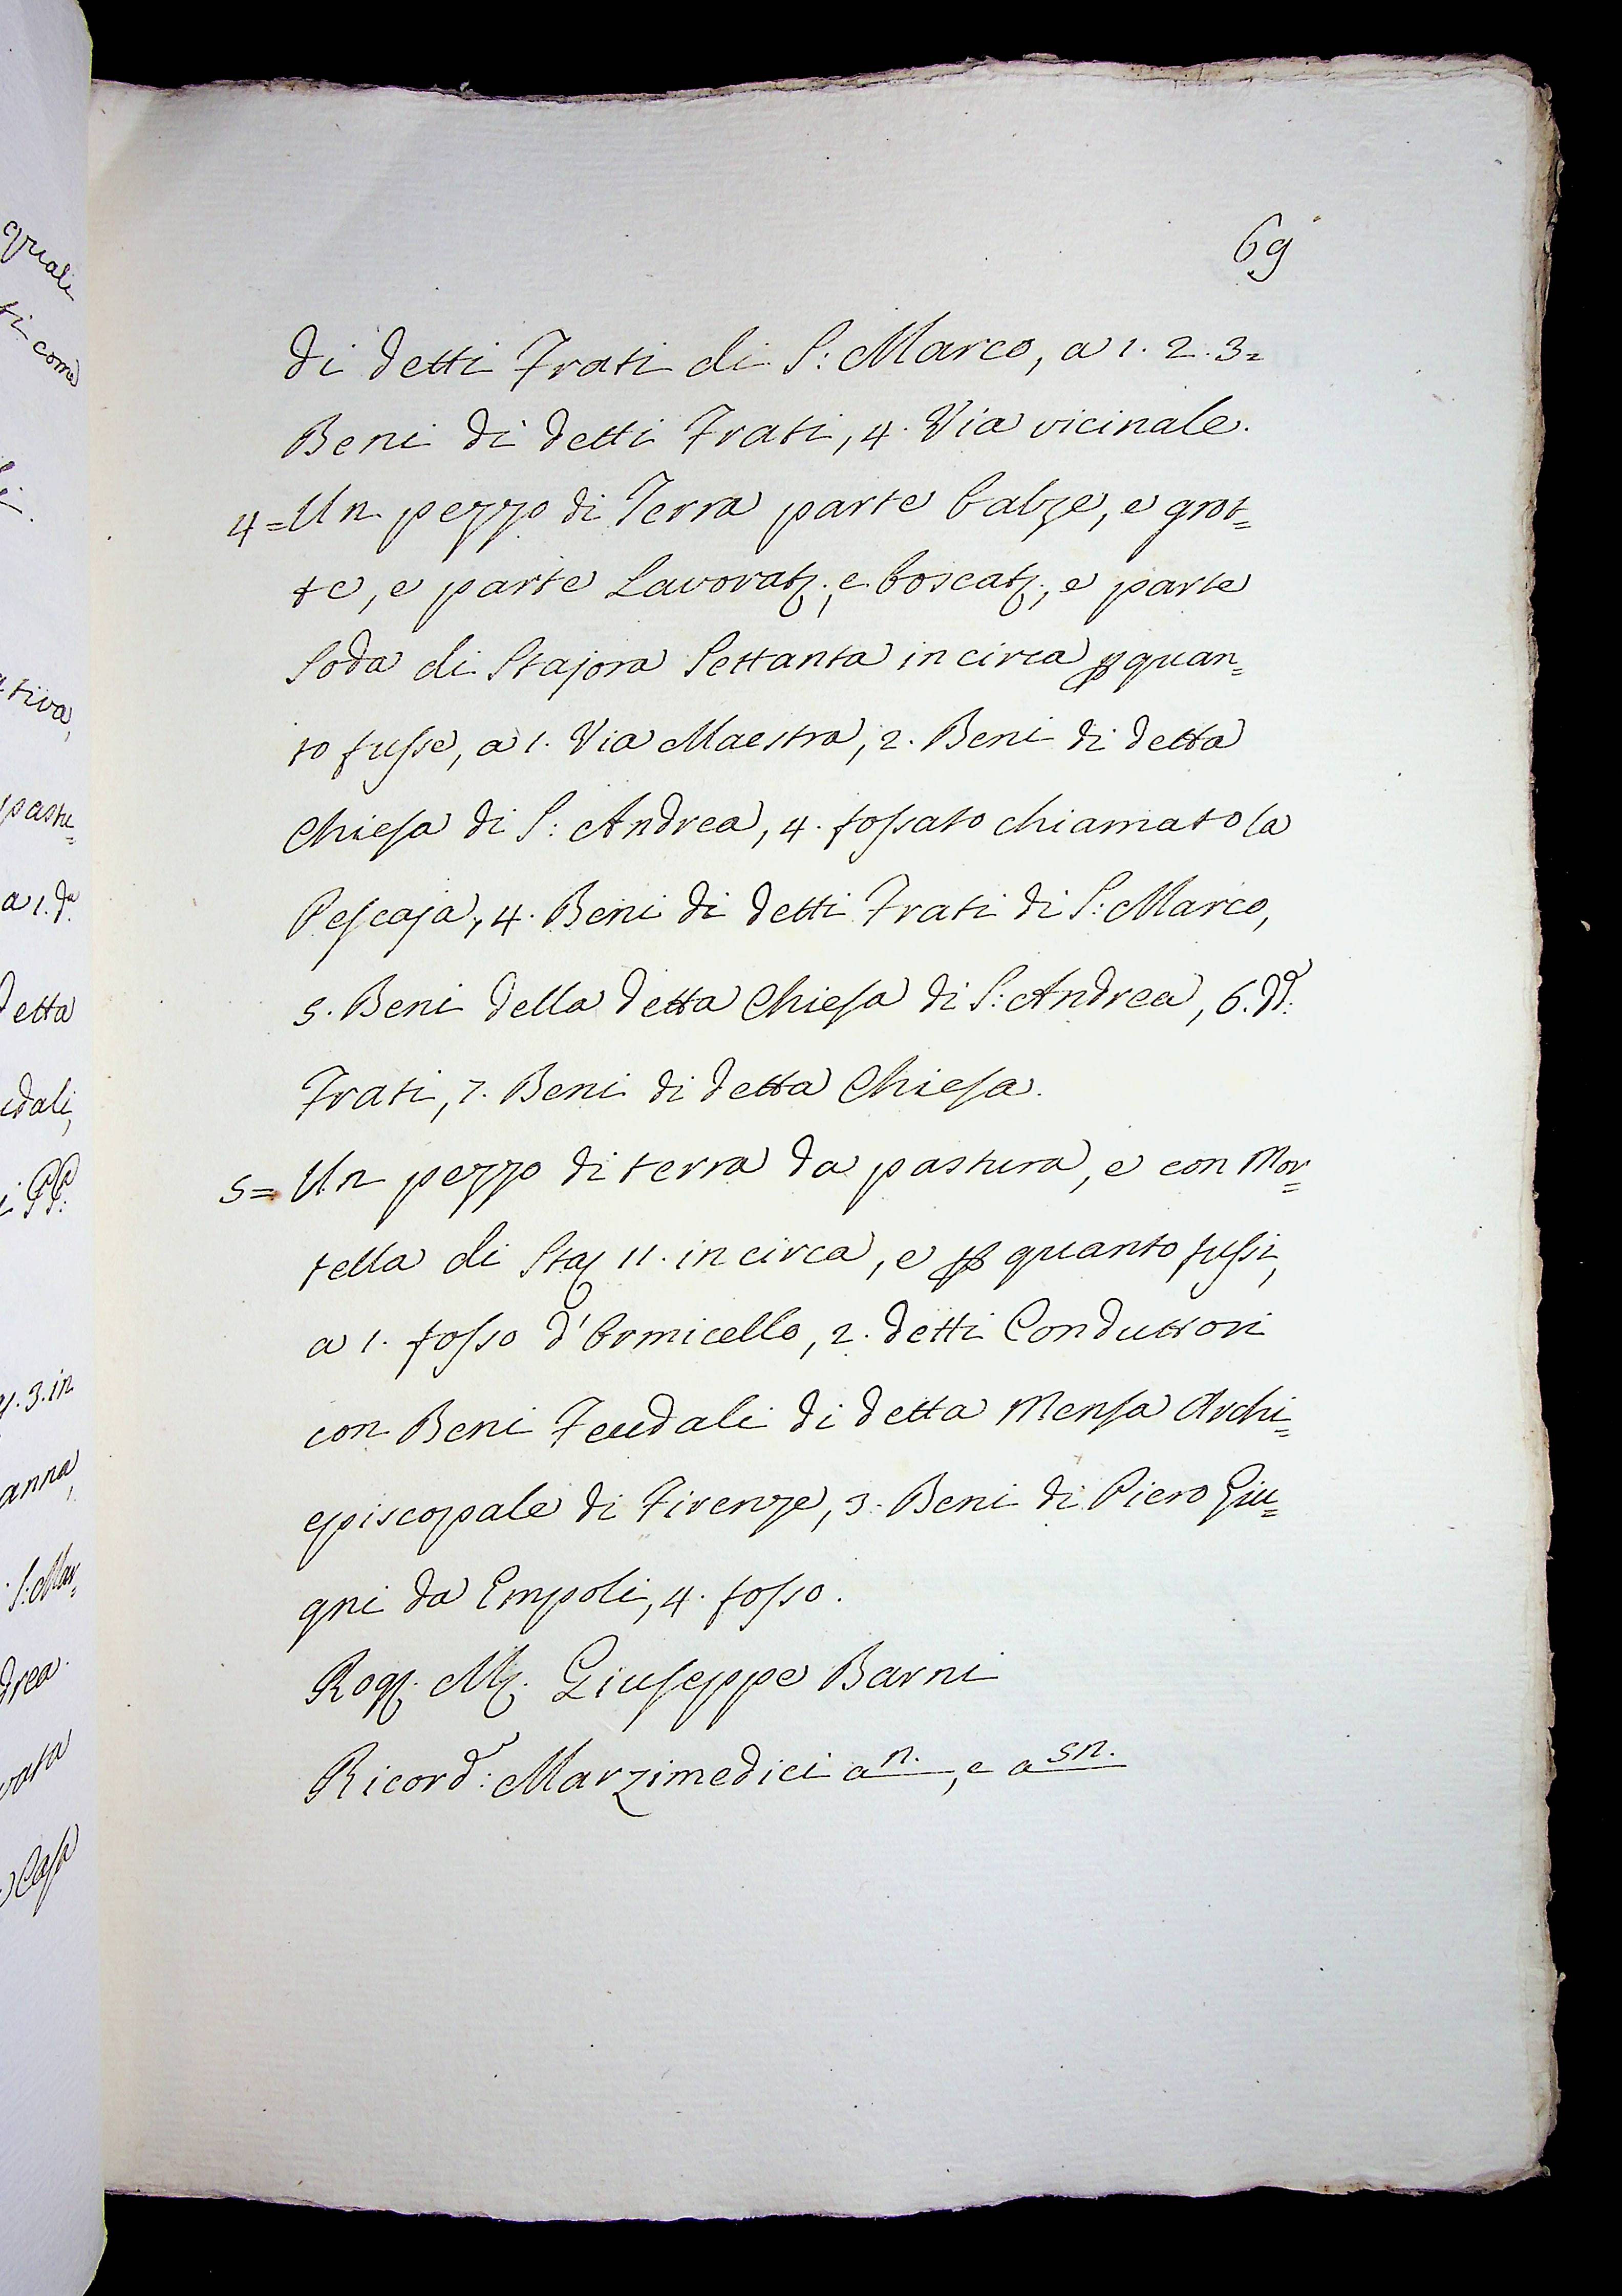 69
di detti Frati di S: Marco, a 1. 2. 3=
Beni di detti Frati, 4. Via vicinale.
4= Un pezzo di Terra parte balze, e grot=
te, e parte Lavorat., e boscat., e parte
soda di Stajora Settanta in circa p quan=
to fusse, a 1. Via Maestra, 2. Beni di detta
Chiesa di S: Andrea, 4. fossato chiamato la
Pescaja, 4. Beni di detti Frati di S: Marco,
5. Beni della detta Chiesa di S: Andrea, 6. dd:
Frati, 7. Beni di detta Chiesa.
5= Un pezzo di terra da pastura, e con Mor=
tella di Staj 11. in circa, e p quanto fussi,
a 1. fosso d'Ormicello, 2. detti Conduttori
con Beni Feudali di detta Mensa Archi=
episcopale di Firenze, 3. Beni di Piero Giu=
gni da Empoli, 4. fosso.
Rog. M. Giuseppe Barni
Ricord: Marzimedici a n., e a sn.
quali
ti come
tiva,
pastu=
a 1. da
detta
udali,
i PP:
3. in
anna,
S: Mar=
drea.
vata
Casa